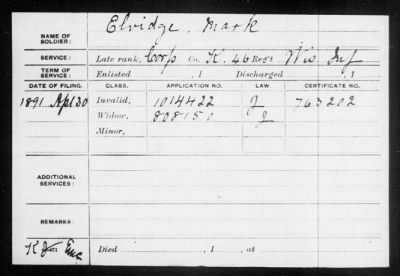 NAME OF SOLDIER: Elvidge, Mark
SERVICE: Late rank, Corp Co. K, 46 Reg't Wis. Inf
TERM OF SERVICE: Enlisted , 1 Discharged , 1
DATE OF FILING. CLASS. APPLICATION NO. LAW. CERTIFICATE NO.
1891 Apl 30 Invalid, 1014422 J 763202
Widow, 808150
Minor,
ADDITIONAL SERVICES:
REMARKS:
Died , 1 , at